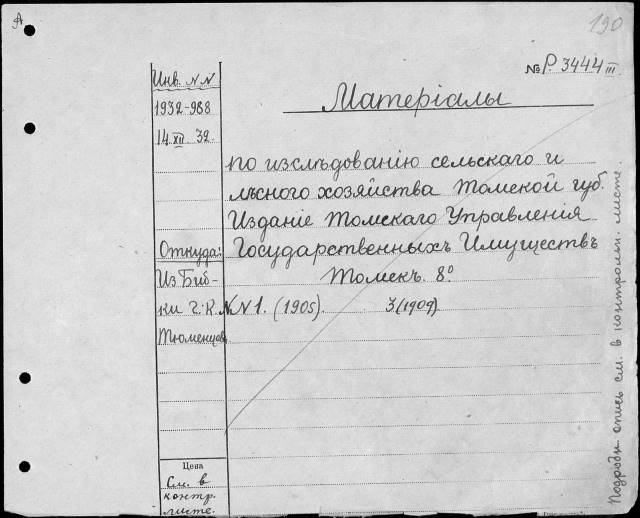 А
190
№ Р. 3444 III.
Инв. NN
1932-988
14.XII.32.
Матеріалы
по изслѣдованію сельскаго и
лѣсного хозяйства Томской губ.
Изданіе Томскаго Управленія
Государственныхъ Имуществъ
Томскъ. 8º
NN 1. (1905). 3 (1909).
Откуда:
Из Биб-
ки Г.К.
Тюменцев.
Цена
См. в
контр.
листе.
Подробн. опись см. в контрольн. листе.